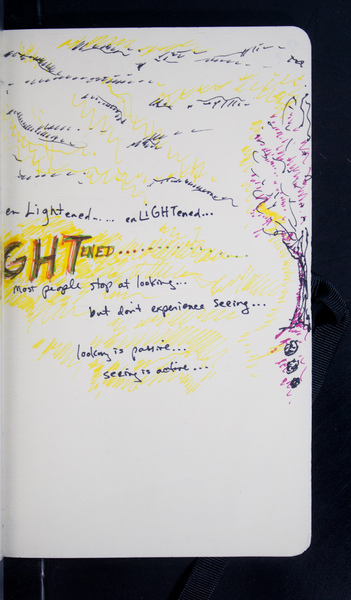 en Lightened.... enLiGHTened...
GHTENED..............
most people stop at looking...
but don't experience seeing...
looking is passive...
seeing is active...